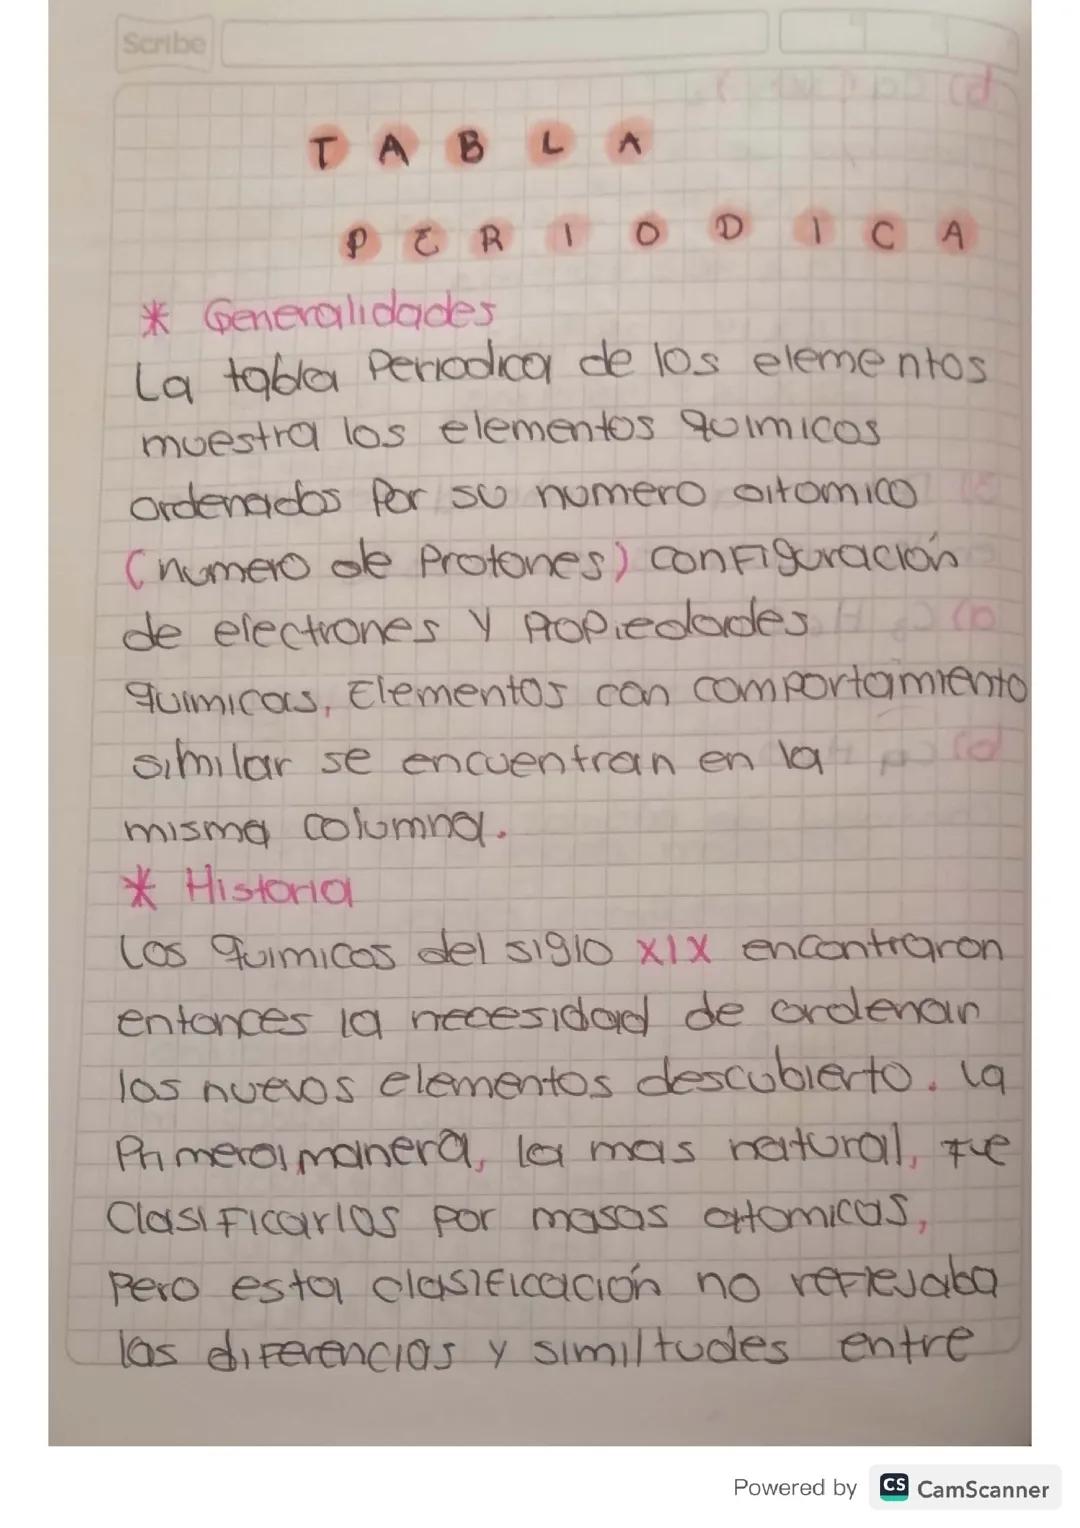 Scribe
TABLA
PERIODICA
* Generalidades
La tabla Periodica de los elementos
muestra los elementos quimicos
ordenados Por su numero atomico
(numero de Protones) configuración
de electrones y Propiedades
quimicas, Elementos con comportamiento
similar se encuentran en la
misma columna.
* Historia
Los quimicos del siglo XIX encontraron
entonces la necesidad de ordenar
los nuevos elementos descubierto. La
Primera manera, la mas natural, fue
Clasificarlos por masas atomicas,
Pero esta clasificación no reflejaba
las diferencias y similtudes entre
Powered by CS CamScanner